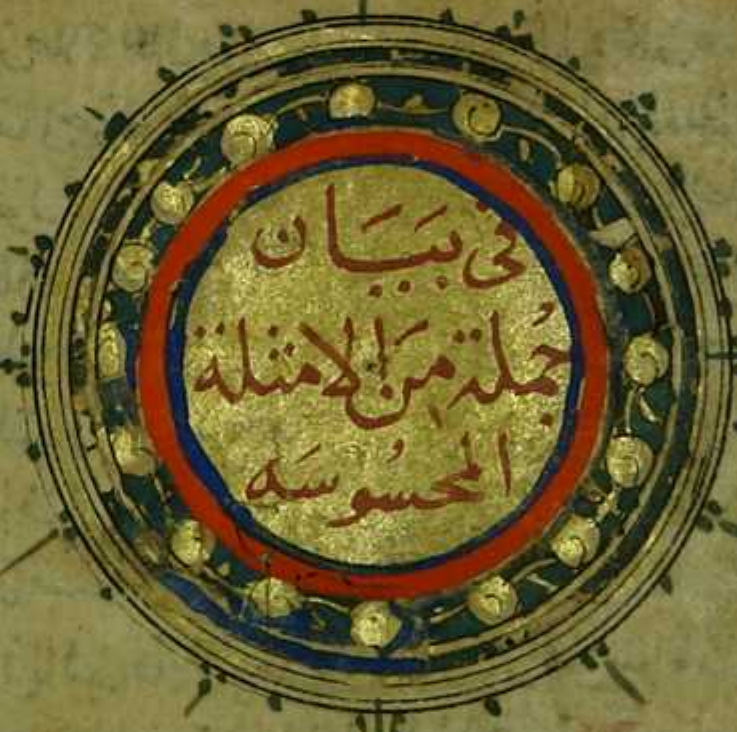 في بَيَان
جُملة مِنَ الامثلة
المحسُوسَه